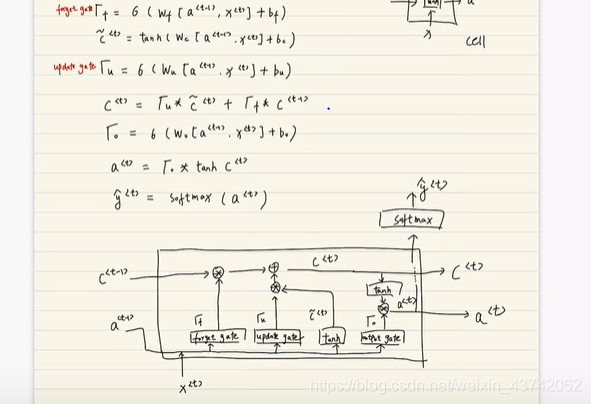 forget gate Γf = σ ( Wf [ a<t-1>, x<t> ] + bf )
c̃<t> = tanh ( Wc [ a<t-1>. x<t> ] + bc )
update gate Γu = σ ( Wu [ a<t-1>, x<t> ] + bu )
c<t> = Γu * c̃<t> + Γf * c<t-1> .
Γo = σ ( Wo [ a<t-1>. x<t> ] + bo )
a<t> = Γo * tanh c<t>
ŷ<t> = softmax ( a<t> )
a
tanh
x
cell
ŷ<t>
softmax
c<t-1>
c<t>
c<t>
tanh
a<t>
a<t>
a<t-1>
Γf
Γu
c̃<t>
Γo
forget gate
update gate
tanh
output gate
x<t>
https://blog.csdn.net/weixin_43742062